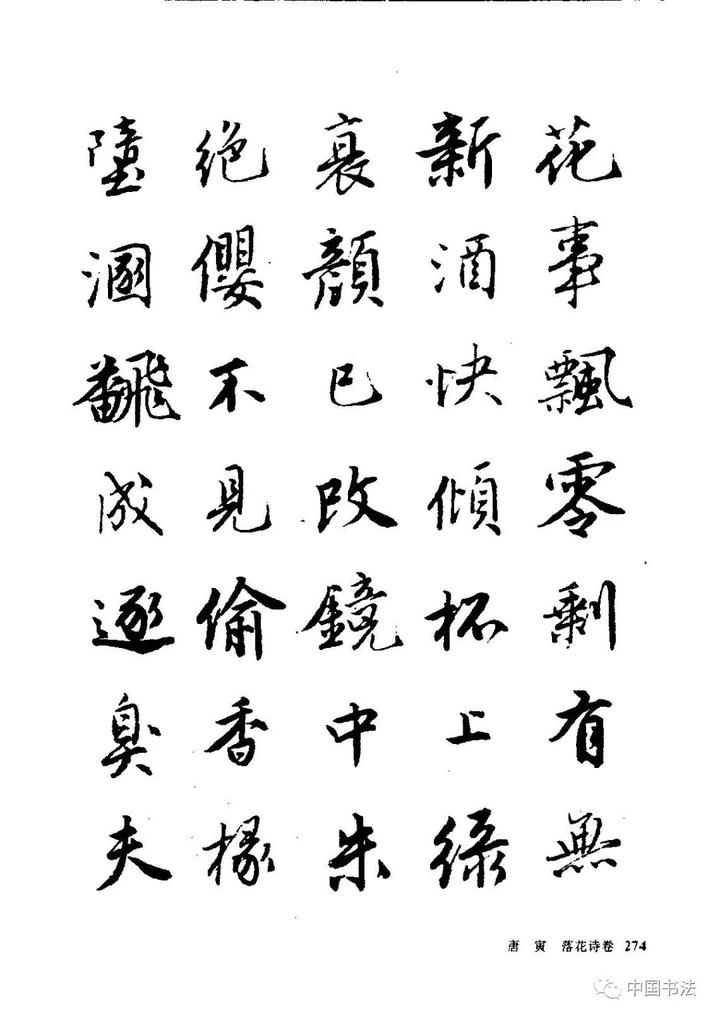 花事飄零剩有無
新酒快傾杯上綠
衰顏已改鏡中朱
絕纓不見偷香椽
墮溷飜成逐臭夫
唐 寅 落花诗卷 274
中国书法